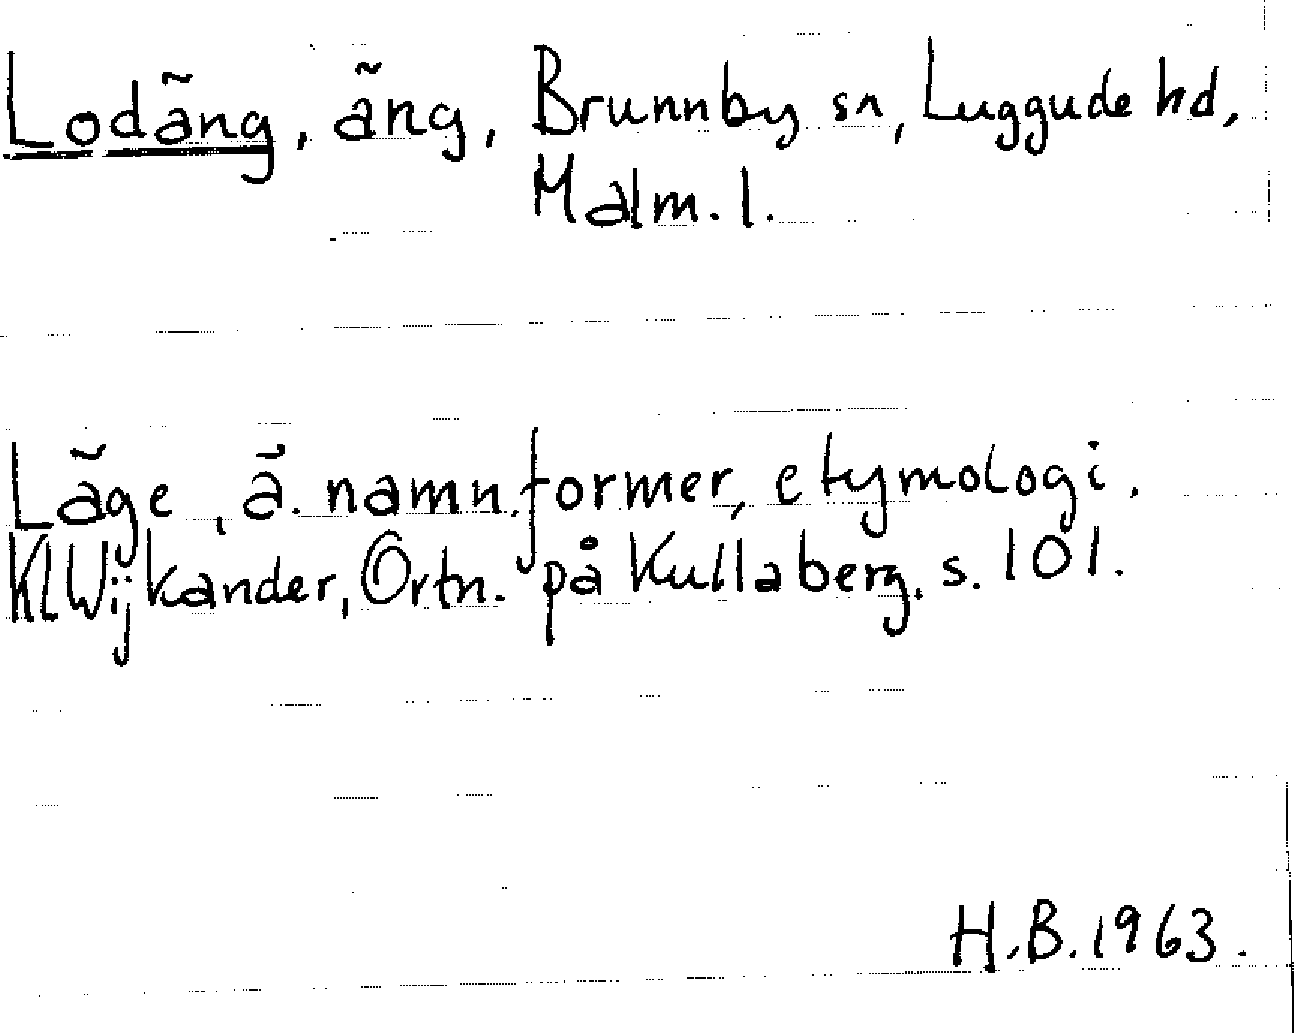 Lodäng, äng, Brunnby sn, Luggude hd,
Malm. l.
Läge, ä. namn.former, etymologi.
KLWijkander, Ortn. på Kullaberg, s. 101.
H.B. 1963.